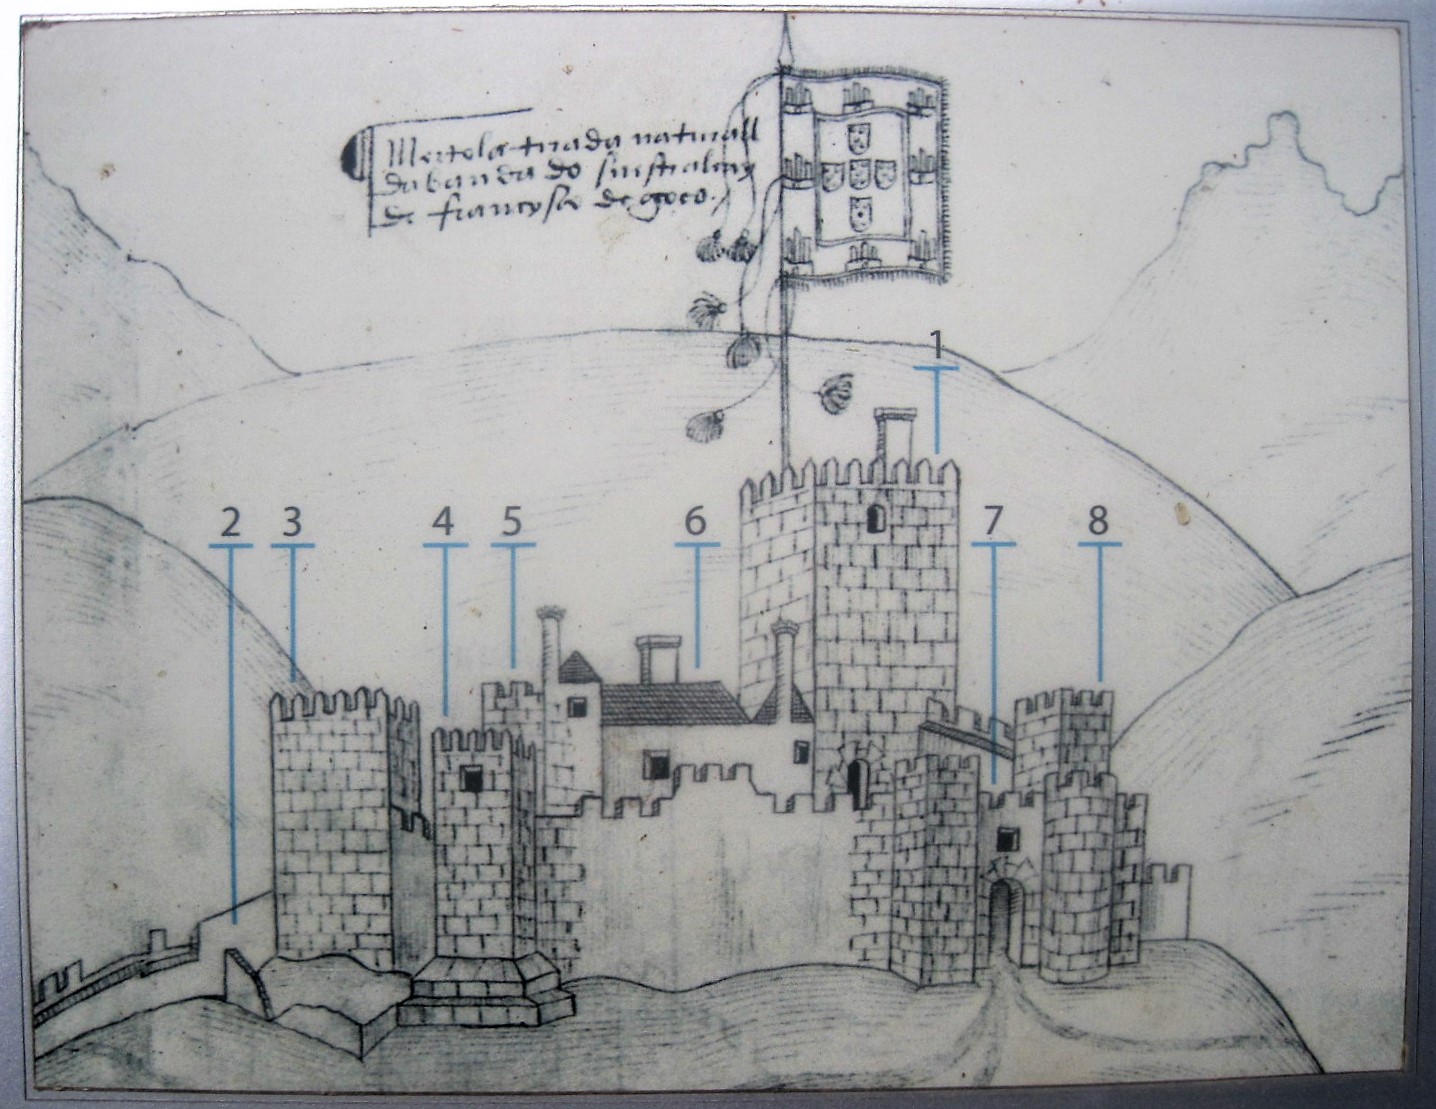 Mertola tirada naturall
da banda do
de francysco de
1
2 3 4 5 6 7 8